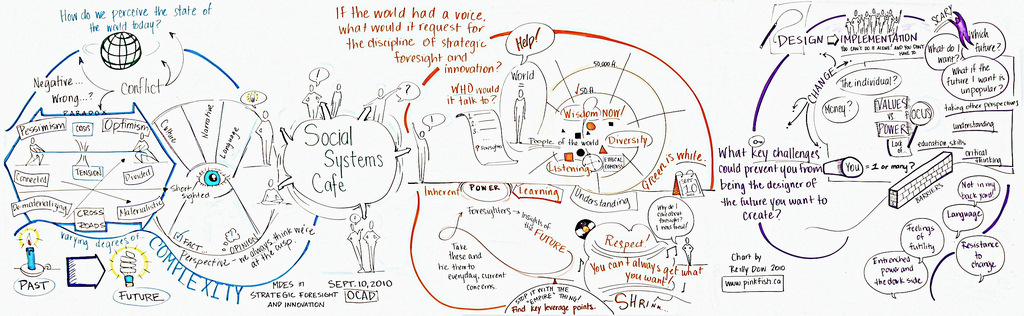 How do we perceive the state of
the world today?
Negative...
Wrong...?
Conflict
PARADOX
Pessimism
Optimism
TENSION
Connected
Divided
De-materialising
Materialistic
CROSS
ROADS
Varying degrees of
COMPLEXITY
PAST
FUTURE
Culture
Narrative
Language
Short
sighted
FACT
OPINION
Perspective - we always think we're
at the cusp.
Social
Systems
Cafe
MDES in
STRATEGIC FORESIGHT
AND INNOVATION
SEPT. 10, 2010
OCAD
If the world had a voice,
what would it request for
the discipline of strategic
foresight and
innovation?
Help!
World
WHO would
it talk to?
50,000 ft
50 ft
Wisdom NOW!
People of the world
Diversity
Listening
Green is white.
SEPT
10
Inherent
POWER
Learning
Understanding
Foresighters → Insights of
the FUTURE
Take
these and
tie them to
everyday, current
concerns.
Why do I
care about
foresight?
Respect!
You can't always get what
you want!
SHRINK...
STOP IT WITH THE
"EMPIRE" THING!
Find key leverage points.
DESIGN ⇒ IMPLEMENTATION
YOU CAN'T DO IT ALONE! AND YOU DON'T
HAVE TO.
SCARY
Which
future?
What do I
want?
What if the
future I want is
unpopular?
CHANGE
The individual?
Money?
VALUES
VS
POWER
FOCUS
Lack of...
taking other perspectives
understanding
education, skills
critical
thinking
You = 1 or many?
BARRIERS
What key challenges
could prevent you from
being the designer of
the future you want to
create?
Not in my
back yard!
Language
Feelings
of futility
Resistance
to change
Entrenched
power and
the dark side
Chart by
Reilly Dow 2010
www.pinkfish.ca